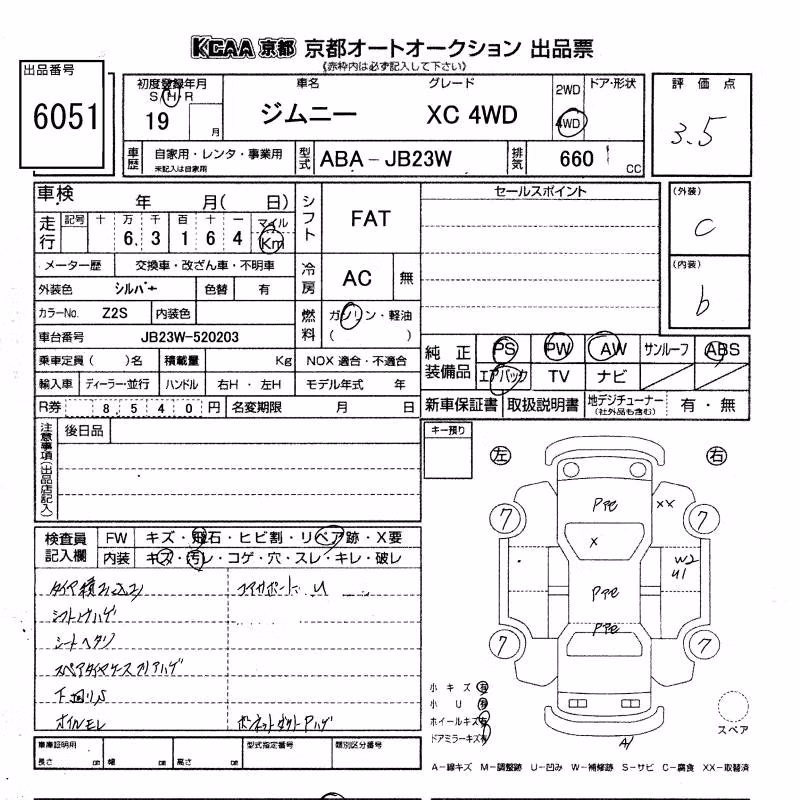 KCAA 京都 京都オートオークション 出品票
《赤枠内は必ず記入して下さい》
出品番号
6051
初度登録年月
S H R
19 月
車名
ジムニー
グレード
XC 4WD
2WD
4WD
ドア・形状
評価点
3.5
車歴
自家用・レンタ・事業用
未記入は自家用
型式
ABA-JB23W
排気
660 cc
車検 年 月( 日)
走行
記号 十 万 千 百 十 一 マイル
6. 3 1 6 4 Km
メーター歴 交換車・改ざん車・不明車
外装色 シルバー 色替 有
カラーNo. Z2S 内装色
車台番号 JB23W-520203
シフト FAT
冷房 AC 無
燃料 ガソリン・軽油
( )
セールスポイント
(外装)
C
(内装)
b
純正装備品
PS PW AW サンルーフ ABS
エアバック TV ナビ
乗車定員( )名 積載量 Kg NOX 適合・不適合
輸入車 ディーラー・並行 ハンドル 右H・左H モデル年式 年
R券 8,540円 名変期限 月 日
新車保証書 取扱説明書 地デジチューナー 有・無
(社外品も含む)
注意事項(出品店記入)
後日品
キー預り
左 右
検査員記入欄
FW キズ・飛石・ヒビ割・リペア跡・X要
内装 キズ・汚レ・コゲ・穴・スレ・キレ・破レ
タイヤ積み込み
コアサポート U
シフトノブハゲ
シートヘタリ
下回りS
オイルモレ
ボンネットダクトPハゲ
7 7
7 7
Pﾊｹ
XX
X
W2
U1
Pﾊｹ
Pﾊｹ
A1
小キズ 有
小U 有
ホイールキズ有
ドアミラーキズ有
スペア
車庫証明用
長さ cm 幅 cm 高さ cm
型式指定番号
類別区分番号
A-線キズ M-調整跡 U-凹み W-補修跡 S-サビ C-腐食 XX-取替済